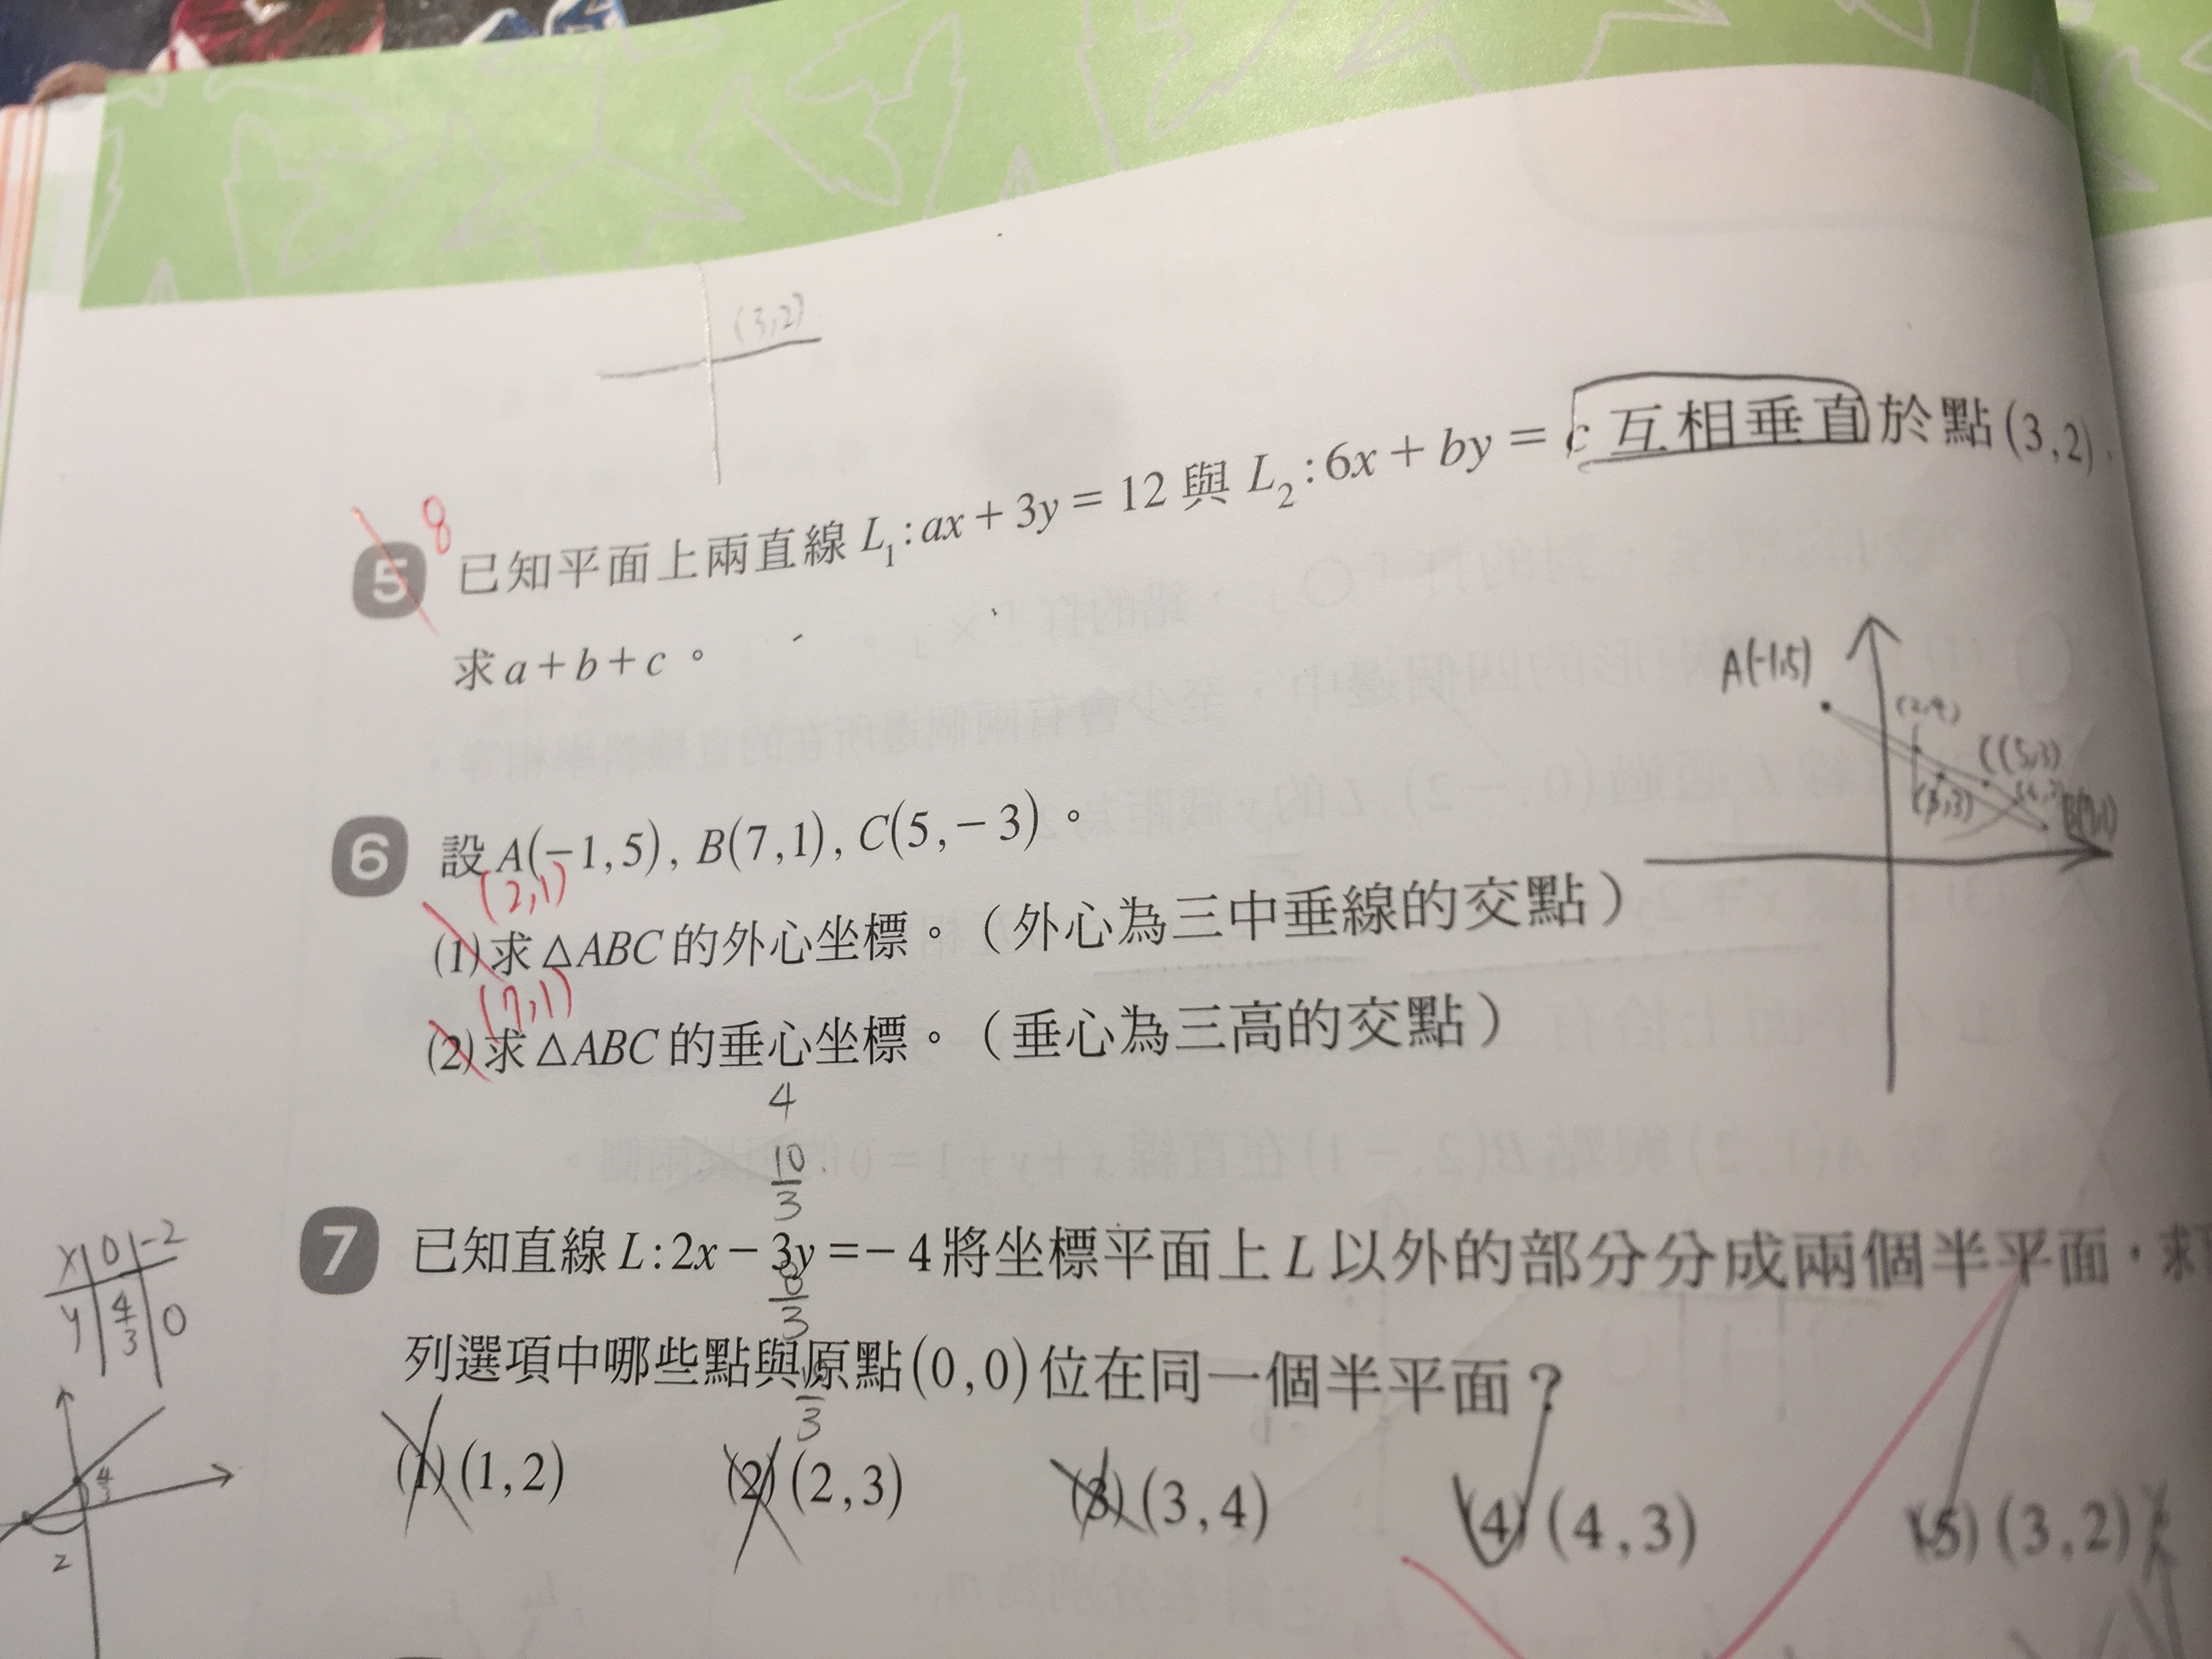 (3,2)
8
5 已知平面上兩直線 L₁:ax+3y=12 與 L₂:6x+by=c 互相垂直於點(3,2)
求a+b+c。
A(-1,5)
(2,4)
C(5,3)
(3,3)
6 設A(−1,5), B(7,1), C(5,−3)。
(2,1)
(1)求△ABC的外心坐標。(外心為三中垂線的交點)
(7,1)
(2)求△ABC的垂心坐標。(垂心為三高的交點)
4
10/3
7 已知直線L:2x−3y=−4將坐標平面上L以外的部分分成兩個半平面,求
8/3
列選項中哪些點與原點(0,0)位在同一個半平面?
3
(1)(1,2) (2)(2,3) (3)(3,4) (4)(4,3) (5)(3,2)
x 0 -2
y 4/3 0
4/3
2